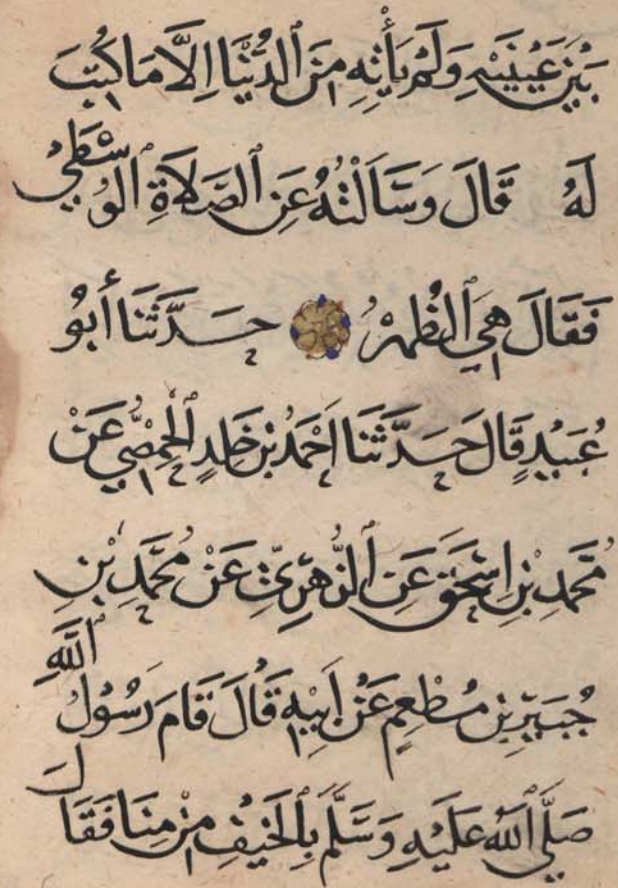 بَيْنَ عَيْنَيْهِ وَلَمْ يَأْتِهِ مِنَ ٱلدُّنْيَا اِلَّا مَا كُتِبَ
لَهُ قَالَ وَسَأَلْتُهُ عَنِ ٱلصَّلَاةِ ٱلْوُسْطَي
فَقَالَ هِيَ ٱلظُّهْرُ حَدَّثَنَا أَبُو
عُبَيْدٍ قَالَ حَدَّثَنَا اَحْمَدُ بْنُ خَلِدٍ ٱلْحِمْصِيُّ عَنْ
مُحَمَّدِ بْنِ اِسْحَقَ عَنِ ٱلزُّهْرِيِّ عَنْ مُحَمَّدِ بْنِ
جُبَيْرِ بْنِ مُطْعِمٍ عَنْ اَبِيهِ قَالَ قَامَ رَسُولُ ٱللَّهِ
صَلَّي ٱللَّهُ عَلَيْهِ وَسَلَّمَ بِٱلْخَيْفِ مِنْ مِنَا فَقَالَ